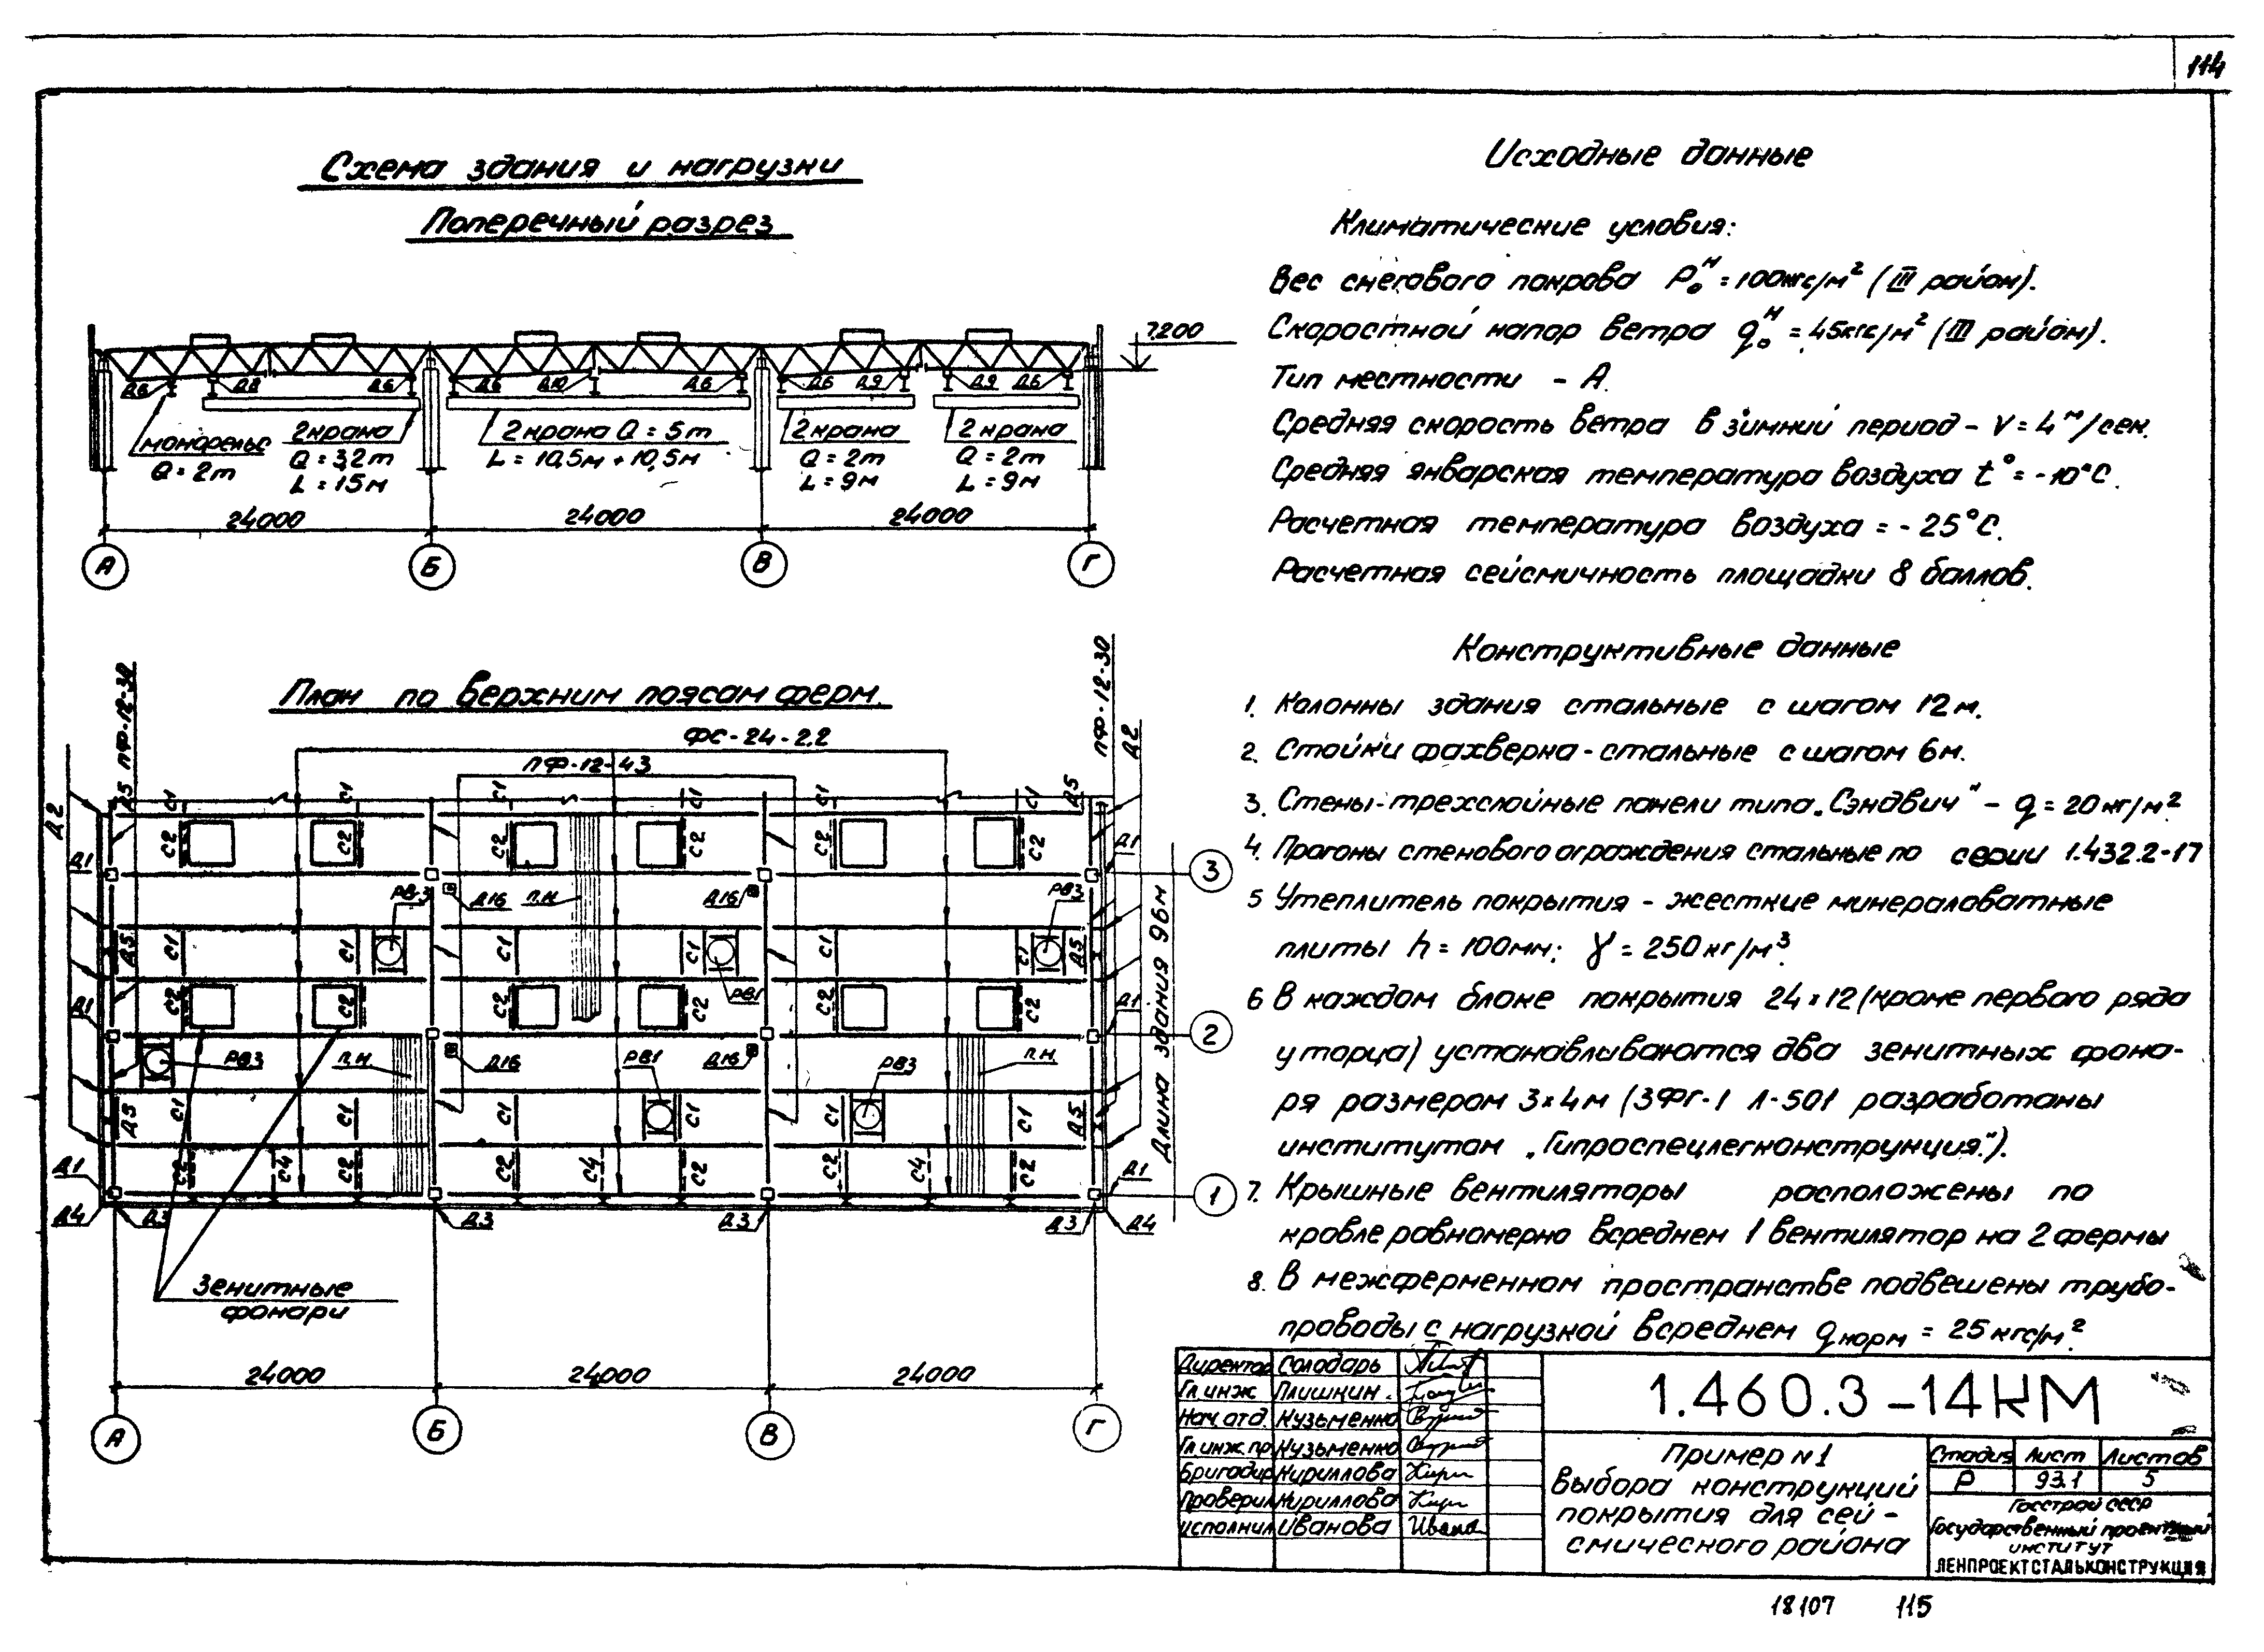 114
Схема здания и нагрузки
Поперечный разрез
7.200
Д6 Д8 Д6 Д6 Д10 Д6 Д6 Д9 Д9 Д6
монорельс
Q = 2т
2 крана
Q = 3,2т
L = 15м
2 крана Q = 5т
L = 10,5м + 10,5м
2 крана
Q = 2т
L = 9м
2 крана
Q = 2т
L = 9м
24000 24000 24000
А Б В Г
План по верхним поясам ферм.
ФС-24-2.2
ПФ-12-43
ПФ-12-30
ПФ-12-30
Д2 Д5 С1 С1 С1 С1 С1 С1 Д5 Д2
Д1 С2 С2 С2 С2 С2 С2 Д1
3
РВ3 Д16 п.н Д16 РВ3
Д5 С1 С1 С1 С1 С1 С1 Д5
РВ1
Д1 С2 С2 С2 С2 С2 С2 Д1
2
РВ3 п.н Д16 РВ1 Д16 РВ3 п.н
Д5 С1 С1 С1 С1 С1 Д5
Д1 С2 С4 С2 С2 С4 С2 С2 С4 С2 Д1
1
Д4 Д3 Д3 Д3 Д3 Д4
Длина здания 96м
Зенитные
фонари
24000 24000 24000
А Б В Г
Исходные данные
Климатические условия:
Вес снегового покрова P₀ᴴ = 100кгс/м² (III район).
Скоростной напор ветра q₀ᴴ = 45кгс/м² (III район).
Тип местности - А.
Средняя скорость ветра в зимний период - V = 4 м/сек.
Средняя январская температура воздуха t° = -10°С.
Расчетная температура воздуха = - 25°С.
Расчетная сейсмичность площадки 8 баллов.
Конструктивные данные
1. Колонны здания стальные с шагом 12м.
2. Стойки фахверка - стальные с шагом 6м.
3. Стены - трехслойные панели типа „Сэндвич" - q = 20 кг/м²
4. Прогоны стенового ограждения стальные по серии 1.432.2-17
5 Утеплитель покрытия - жесткие минераловатные
плиты h = 100мм; γ = 250 кг/м³.
6 В каждом блоке покрытия 24×12 (кроме первого ряда
у торца) устанавливаются два зенитных фона-
ря размером 3×4м (ЗФГ-1 Л-501 разработаны
институтом „Гипроспецлегконструкция").
7. Крышные вентиляторы расположены по
кровле равномерно всреднем 1 вентилятор на 2 фермы
8. В межферменном пространстве подвешены трубо-
проводы с нагрузкой всреднем qнорм = 25 кгс/м²
Директор Солодарь
Гл инж Плишкин
Нач. отд. Кузьменко
Гл инж. пр Кузьменко
Бригадир Кириллова
Проверил Кириллова
исполнил Иванова
1.460.3-14КМ
Пример №1
выбора конструкций
покрытия для сей-
смического района
Стадия Лист Листов
Р 93.1 5
Госстрой СССР
Государственный проектный
институт
ЛЕНПРОЕКТСТАЛЬКОНСТРУКЦИЯ
18107 115